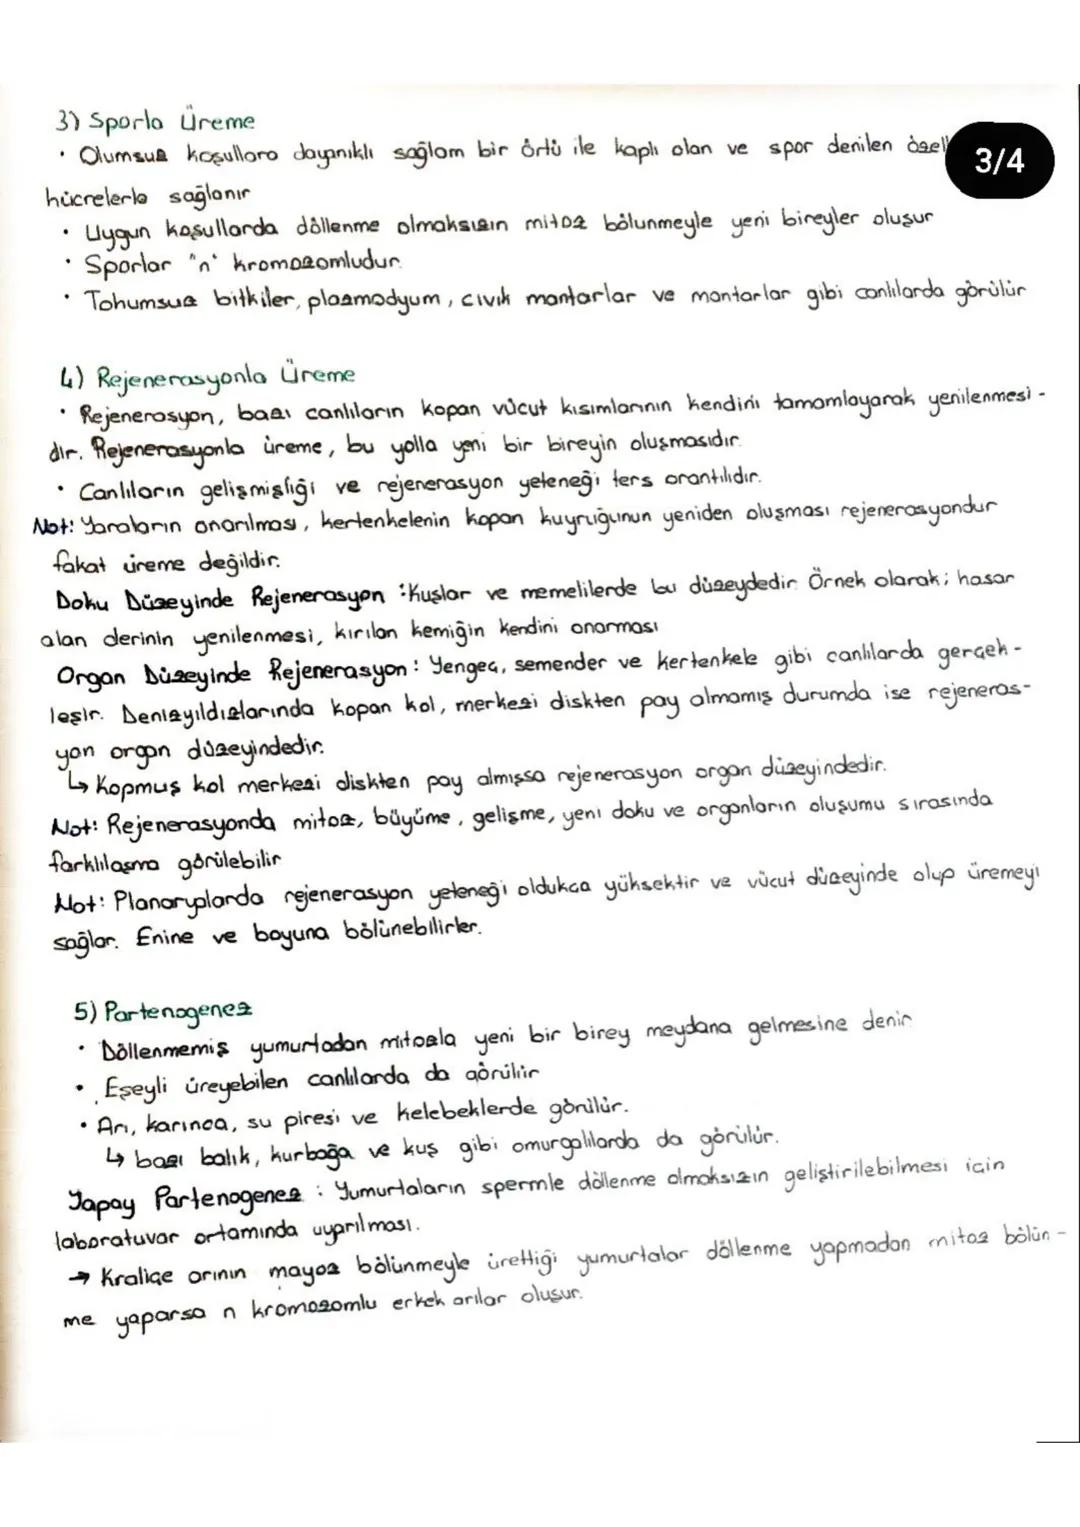 3) Sporla Üreme
• Olumsuz koşullara dayanıklı sağlam bir örtü ile kaplı olan ve spor denilen özell
3/4
hücrelerle sağlanır
• Uygun koşullarda döllenme olmaksızın mitoz bölünmeyle yeni bireyler oluşur
• Sporlar "n" kromozomludur.
• Tohumsuz bitkiler, plazmodyum, cıvık mantarlar ve mantarlar gibi canlılarda görülür
4) Rejenerasyonla Üreme
• Rejenerasyon, bazı canlıların kopan vücut kısımlarının kendini tamamlayarak yenilenmesi-
dir. Rejenerasyonla üreme, bu yolla yeni bir bireyin oluşmasıdır.
• Canlıların gelişmişliği ve rejenerasyon yeteneği ters orantılıdır.
Not: Yaraların onarılması, kertenkelenin kopan kuyruğunun yeniden oluşması rejenerasyondur
fakat üreme değildir.
Doku Düzeyinde Rejenerasyon : Kuşlar ve memelilerde bu düzeydedir. Örnek olarak; hasar
alan derinin yenilenmesi, kırılan kemiğin kendini onarması
Organ Düzeyinde Rejenerasyon : Yengeç, semender ve kertenkele gibi canlılarda gerçek-
leşir. Denizyıldızlarında kopan kol, merkezi diskten pay almamış durumda ise rejeneras-
yon organ düzeyindedir.
↳ Kopmuş kol merkezi diskten pay almışsa rejenerasyon organ düzeyindedir.
Not: Rejenerasyonda mitoz, büyüme, gelişme, yeni doku ve organların oluşumu sırasında
farklılaşma görülebilir
Not: Planaryalarda rejenerasyon yeteneği oldukca yüksektir ve vücut düzeyinde olup üremeyi
sağlar. Enine ve boyuna bölünebilirler.
5) Partenogenez
• Döllenmemiş yumurtadan mitozla yeni bir birey meydana gelmesine denir
• Eşeyli üreyebilen canlılarda da görülür
• Arı, karınca, su piresi ve kelebeklerde görülür.
↳ bazı balık, kurbağa ve kuş gibi omurgalılarda da görülür.
Yapay Partenogenez : Yumurtaların spermle döllenme olmaksızın geliştirilebilmesi için
laboratuvar ortamında uyarılması.
→ Kraliçe arının mayoz bölünmeyle ürettiği yumurtalar döllenme yapmadan mitoz bölün-
me yaparsa n kromozomlu erkek arılar oluşur.